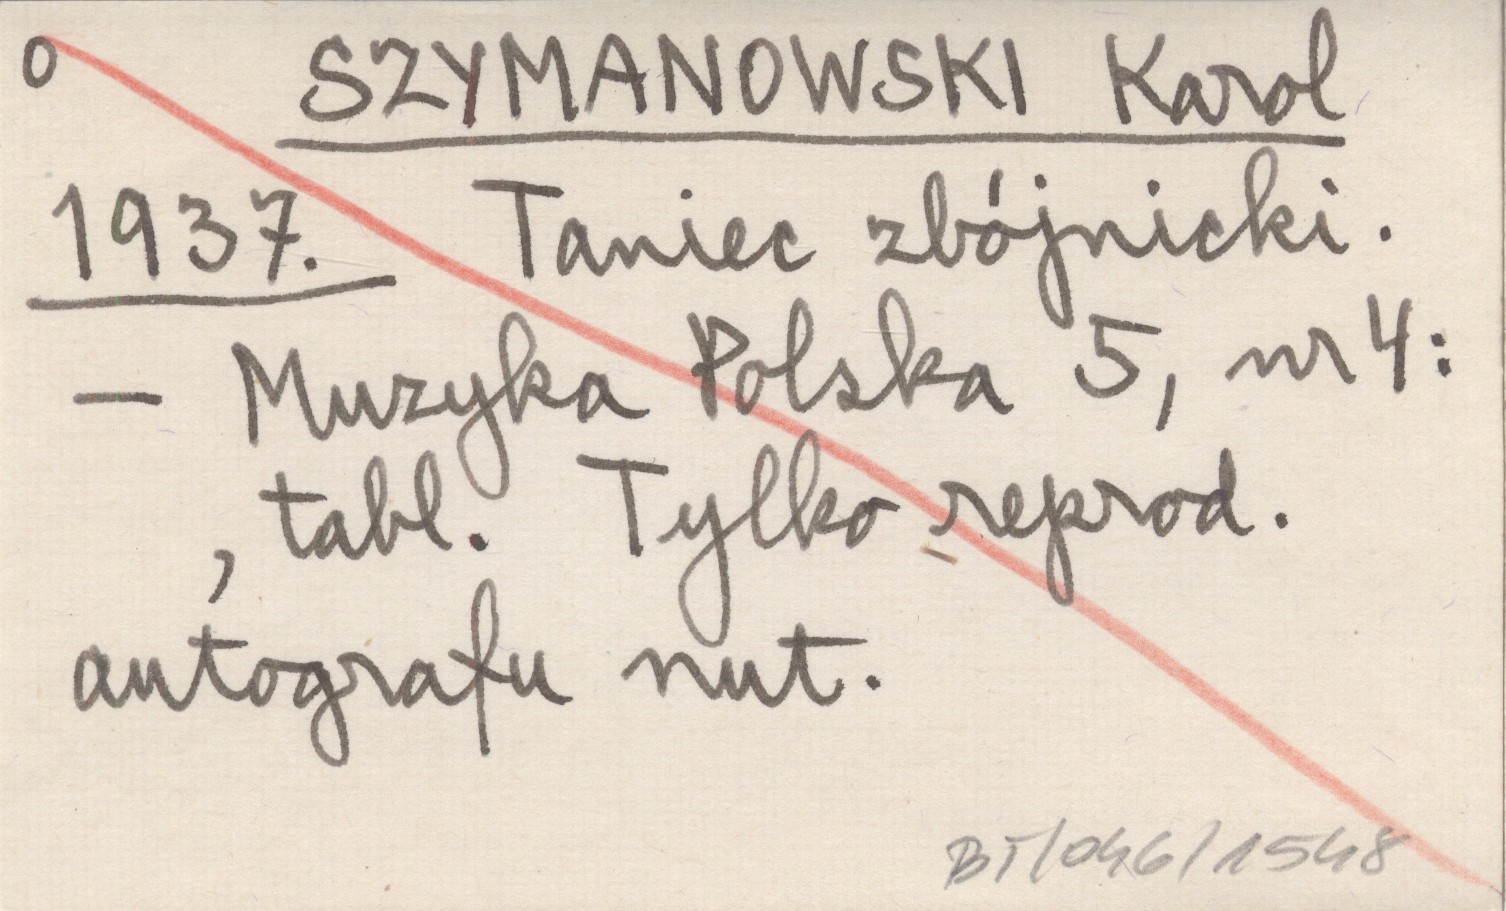 o SZYMANOWSKI Karol
1937. Taniec zbójnicki.
— Muzyka Polska 5, nr 4:
, tabl. Tylko reprod.
autografu nut.
BT/046/1548